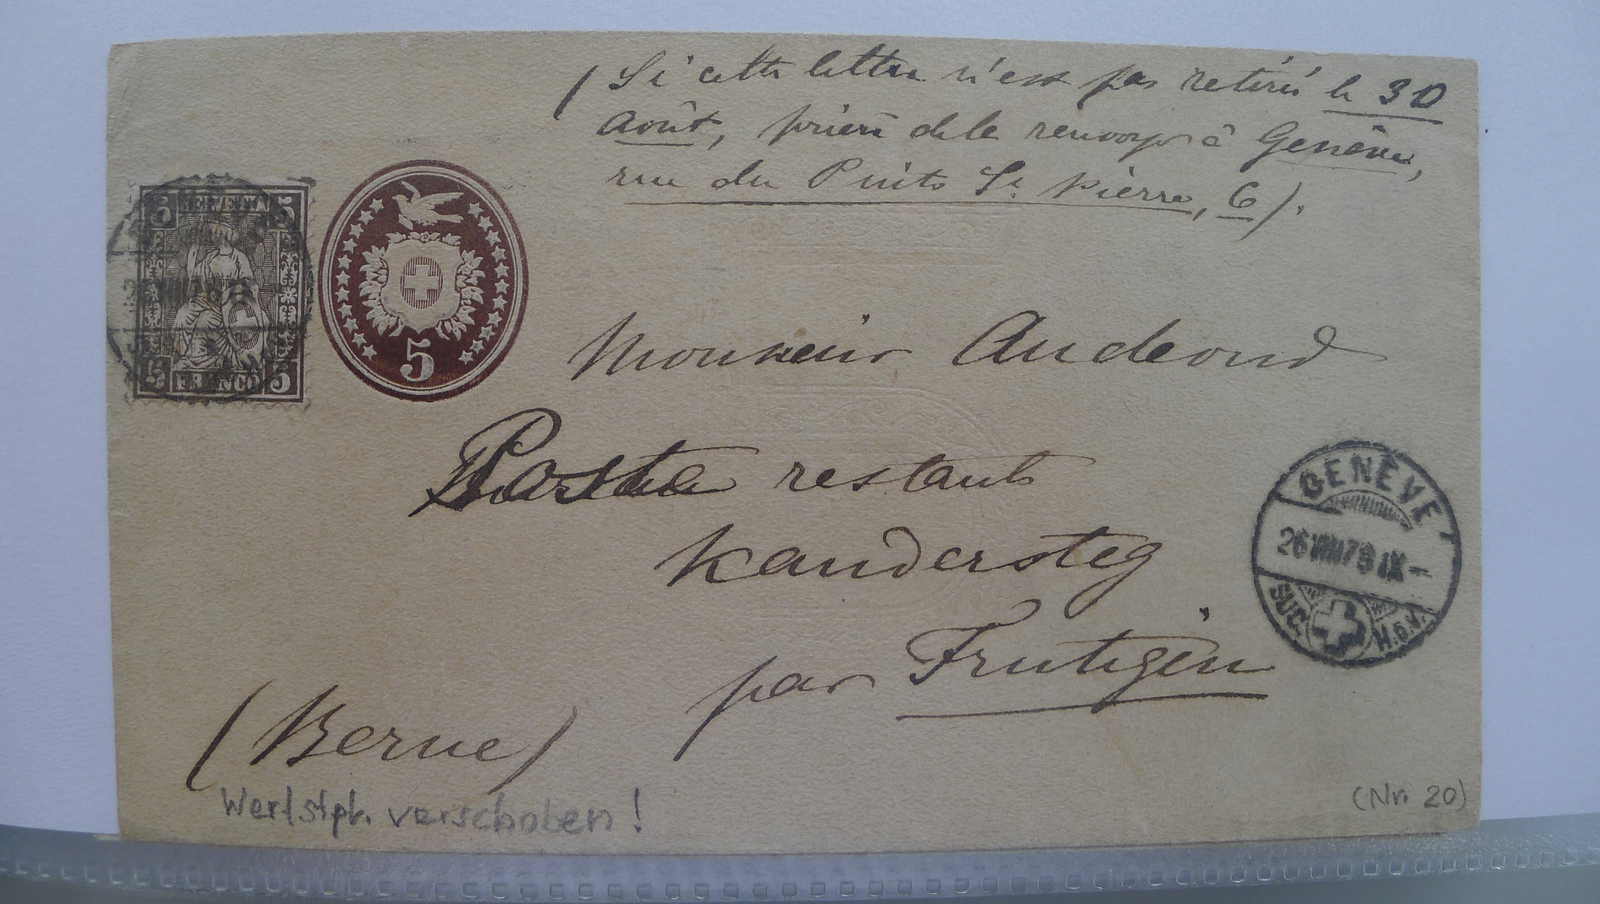 (Si cette lettre n'est pas retiré le 30
Août, prière de la renvoyer à Genève,
rue du Puits St. Pierre, 6).
5 HELVETIA 5
5 FRANCO 5
5
Monsieur Audeoud
Poste restante
Kandersteg
par Frutigen
(Berne)
GENÈVE
26 VIII 79 IX-
SUC. H.D.V.
Wertstph. verschoben!
(Nr. 20)